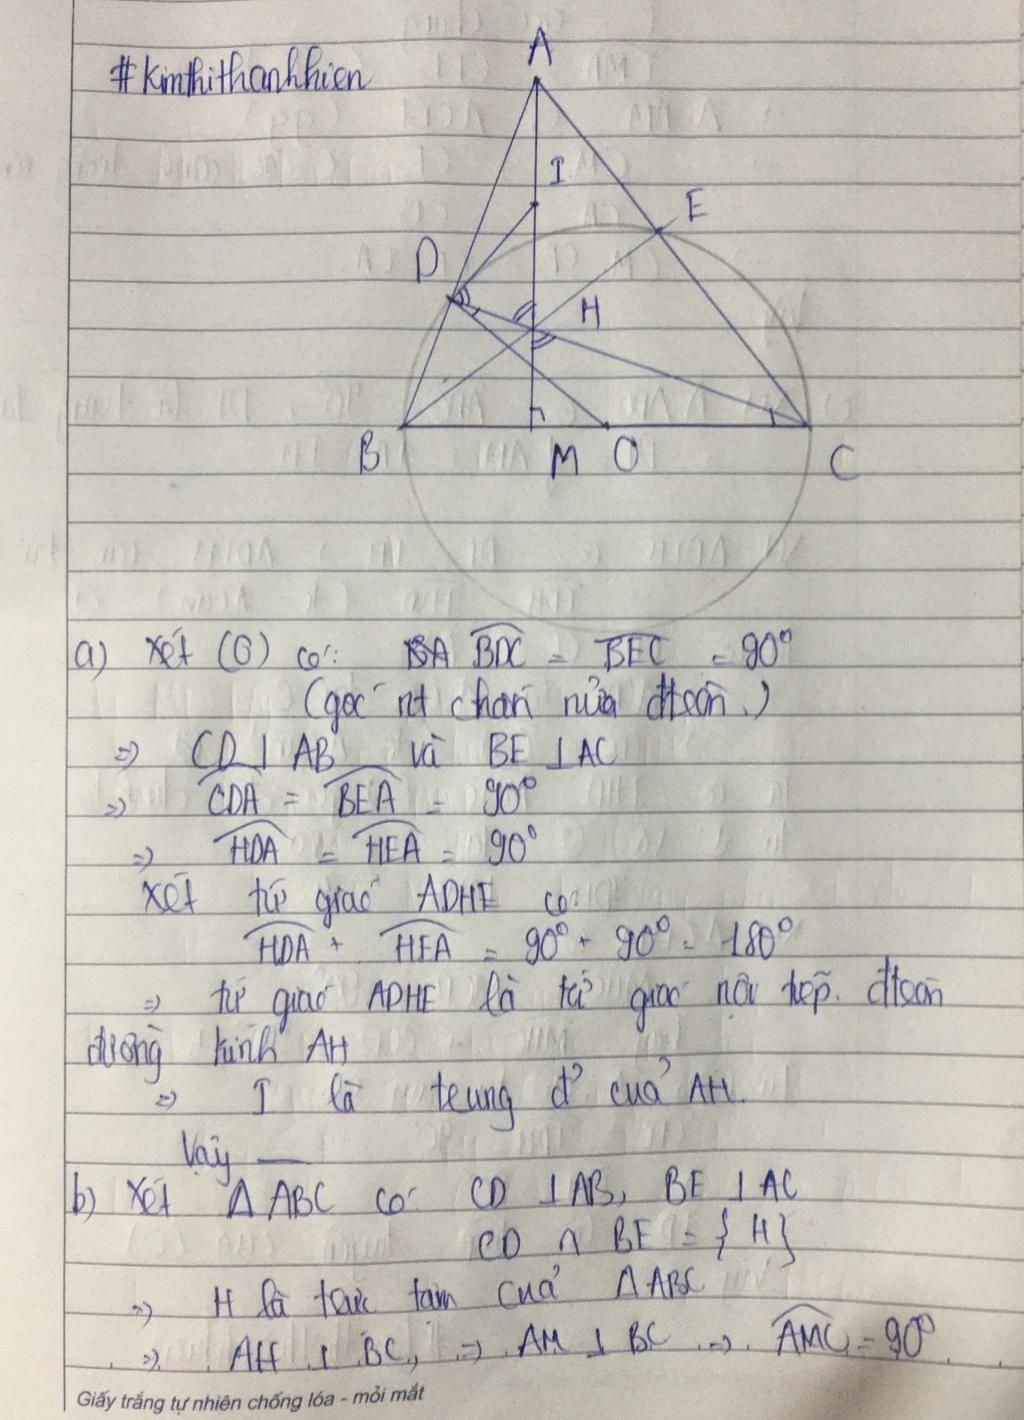 #Kimthithanhhien
A
I
E
D
H
B
M
O
C
a) Xét (O) có: BA BDC = BEC = 90°
(góc nt chắn nửa đtròn.)
=> CD ⊥ AB và BE ⊥ AC
=> CDA = BEA = 90°
=> HDA = HEA = 90°
Xét tứ giác ADHE có:
HDA + HEA = 90° + 90° = 180°
=> tứ giác ADHE là tứ giác nội tiếp. đtròn
đường kính AH
=> I là trung đ' của AH.
Vậy —
b) Xét ΔABC có: CD ⊥ AB, BE ⊥ AC
CD ∩ BE = {H}
=> H là trực tâm của ΔABC
=> AH ⊥ BC, => AM ⊥ BC => AMC = 90°
Giấy trắng tự nhiên chống lóa - mỏi mắt